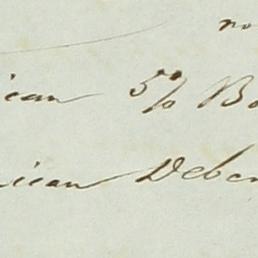 no
ican 5% Bo
ican Deben